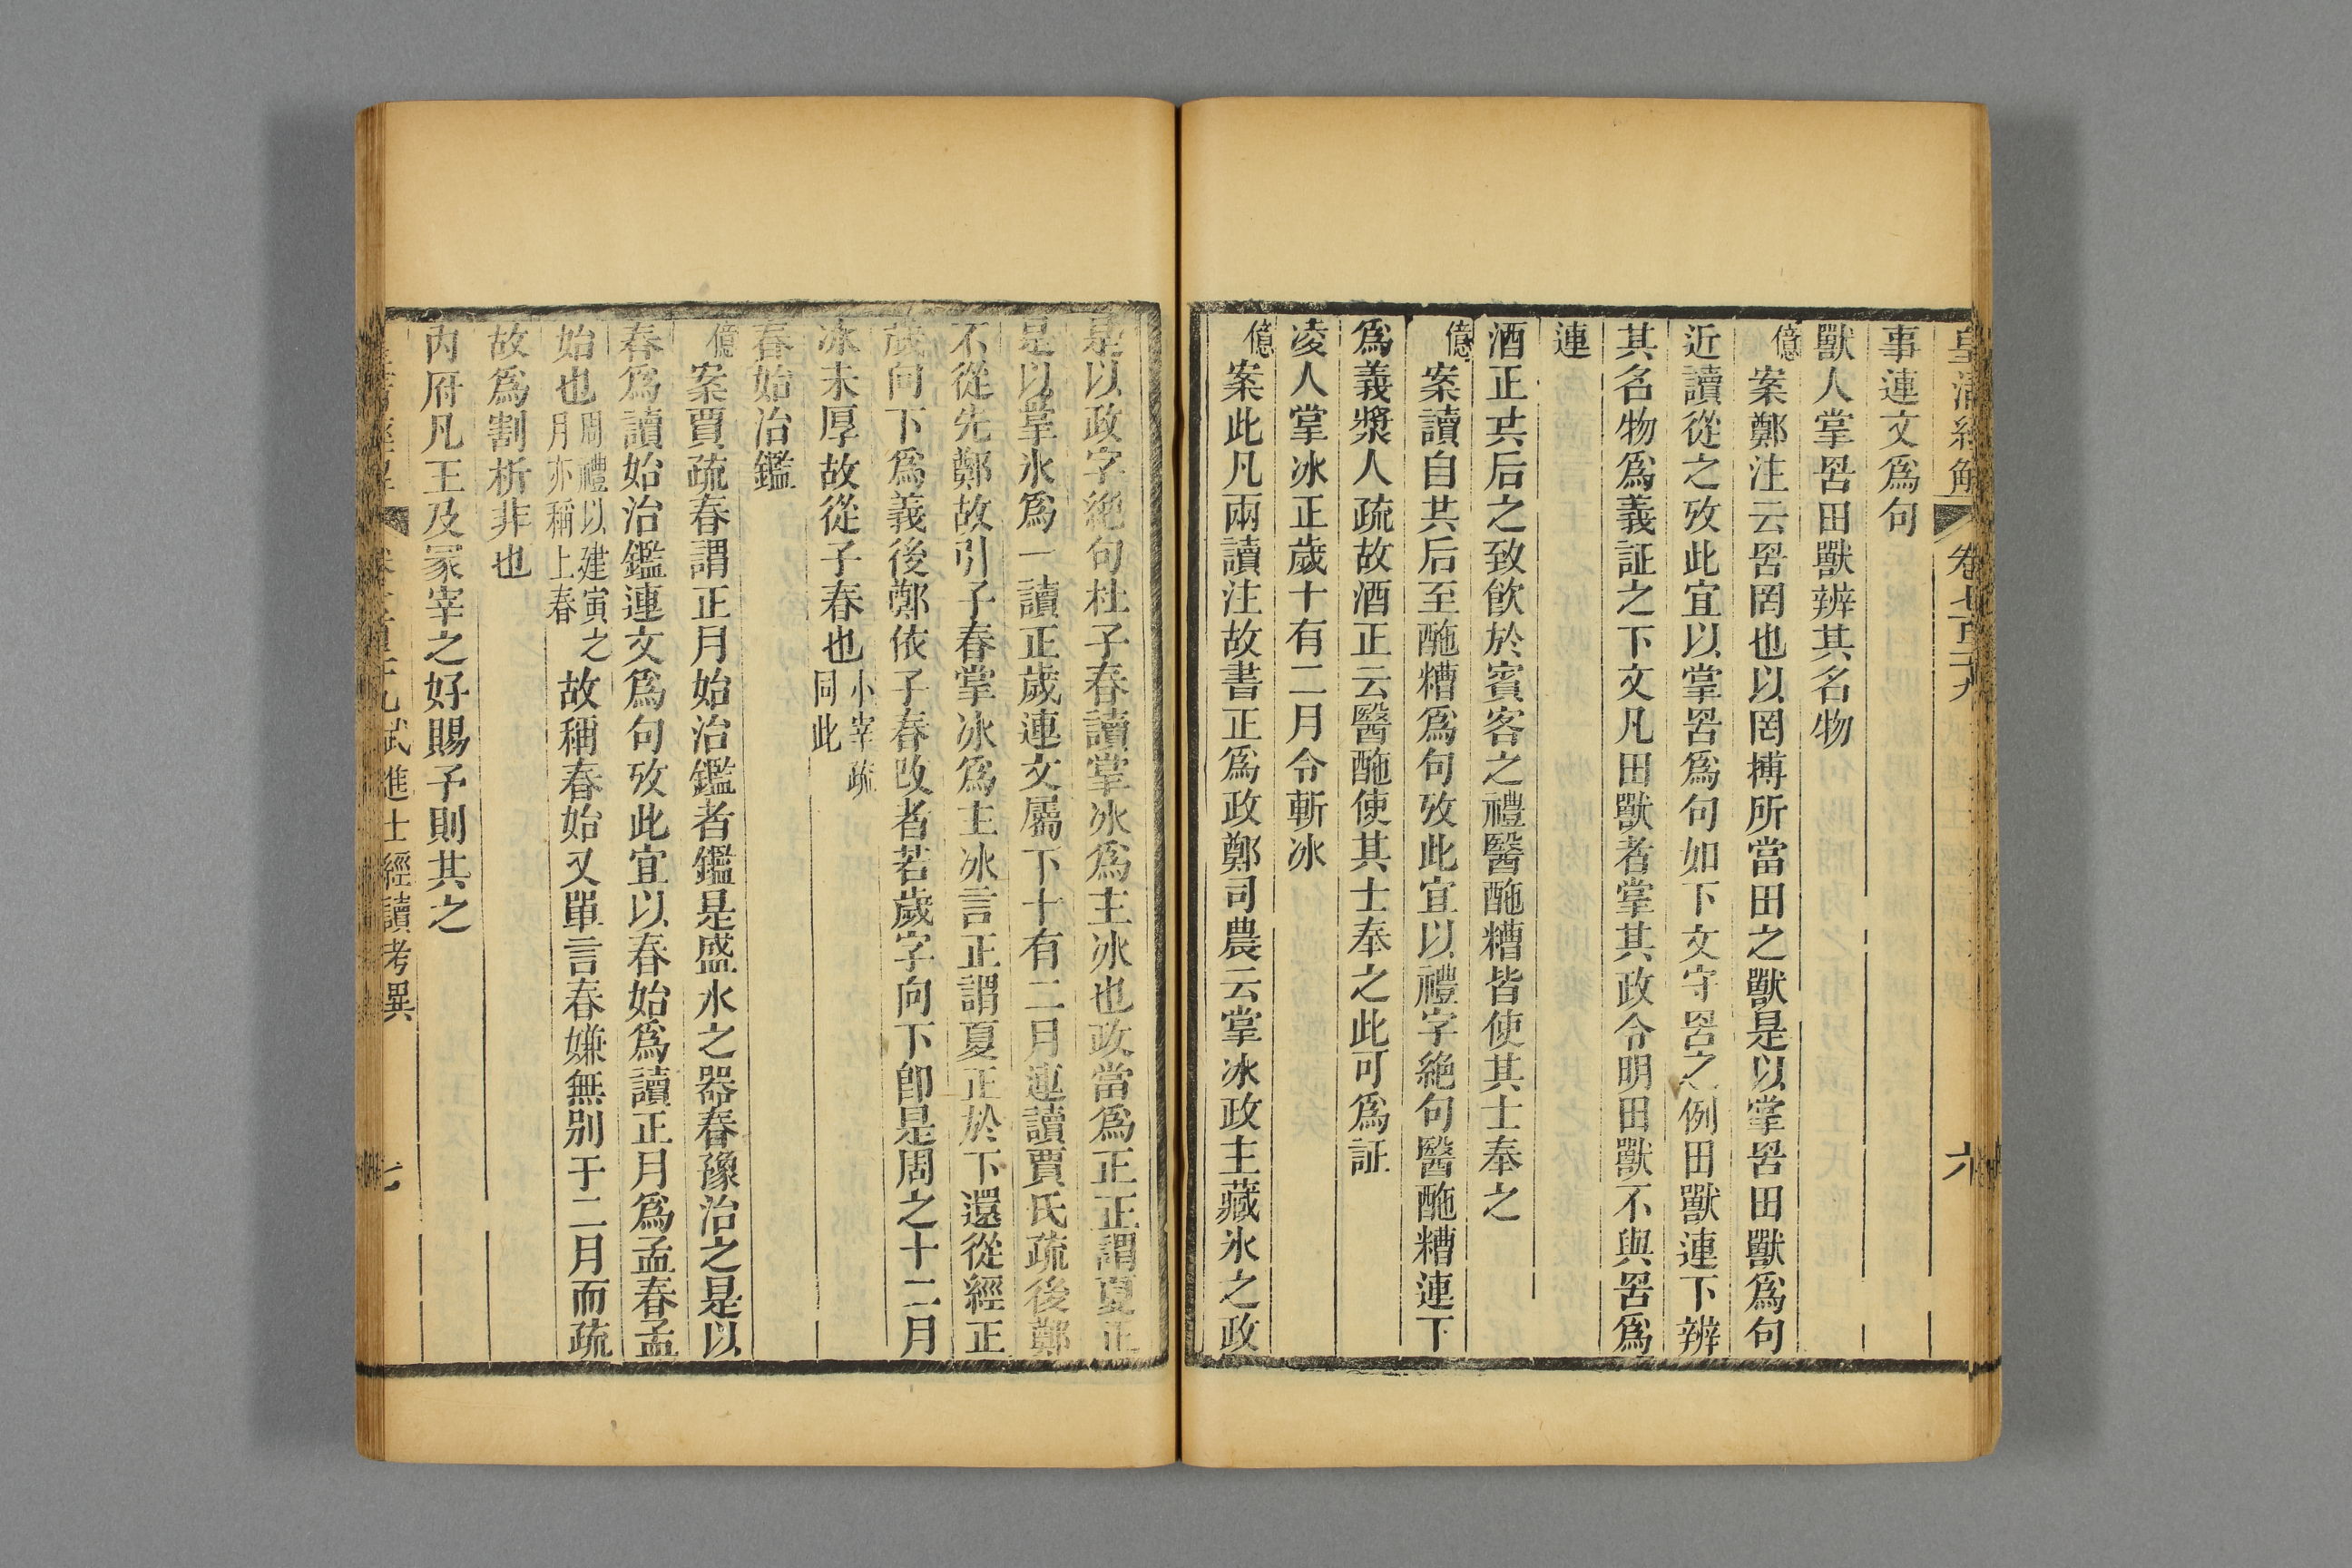 皇清經解 卷七百二十九 六
事連文爲句
獸人掌罟田獸辨其名物
億案鄭注云罟罔也以罔搏所當田之獸是以掌罟田獸爲句
近讀從之攷此宜以掌罟爲句如下文守罟之例田獸連下辨
其名物爲義証之下文凡田獸者掌其政令明田獸不與罟爲
連
酒正共后之致飮於賓客之禮醫酏糟皆使其士奉之
億案讀自共后至酏糟爲句攷此宜以禮字絶句醫酏糟連下
爲義漿人疏故酒正云醫酏使其士奉之此可爲証
凌人掌冰正歲十有二月令斬冰
億案此凡兩讀注故書正爲政鄭司農云掌冰政主藏氷之政
是以政字絶句杜子春讀掌冰爲主冰也政當爲正正謂夏正
是以掌氷爲一讀正歲連文屬下十有二月連讀賈氏疏後鄭
不從先鄭故引子春掌冰爲主冰言正謂夏正於下還從經正
歲向下爲義後鄭依子春改者若歲字向下卽是周之十二月
冰未厚故從子春也小宰疏同此
春始治鑑
億案賈疏春謂正月始治鑑者鑑是盛水之器春豫治之是以
春爲讀始治鑑連文爲句攷此宜以春始爲讀正月爲孟春孟
始也周禮以建寅之月亦稱上春故稱春始又單言春嫌無别于二月而疏
故爲割析非也
內府凡王及冢宰之好賜予則共之
武進士經讀考異 七